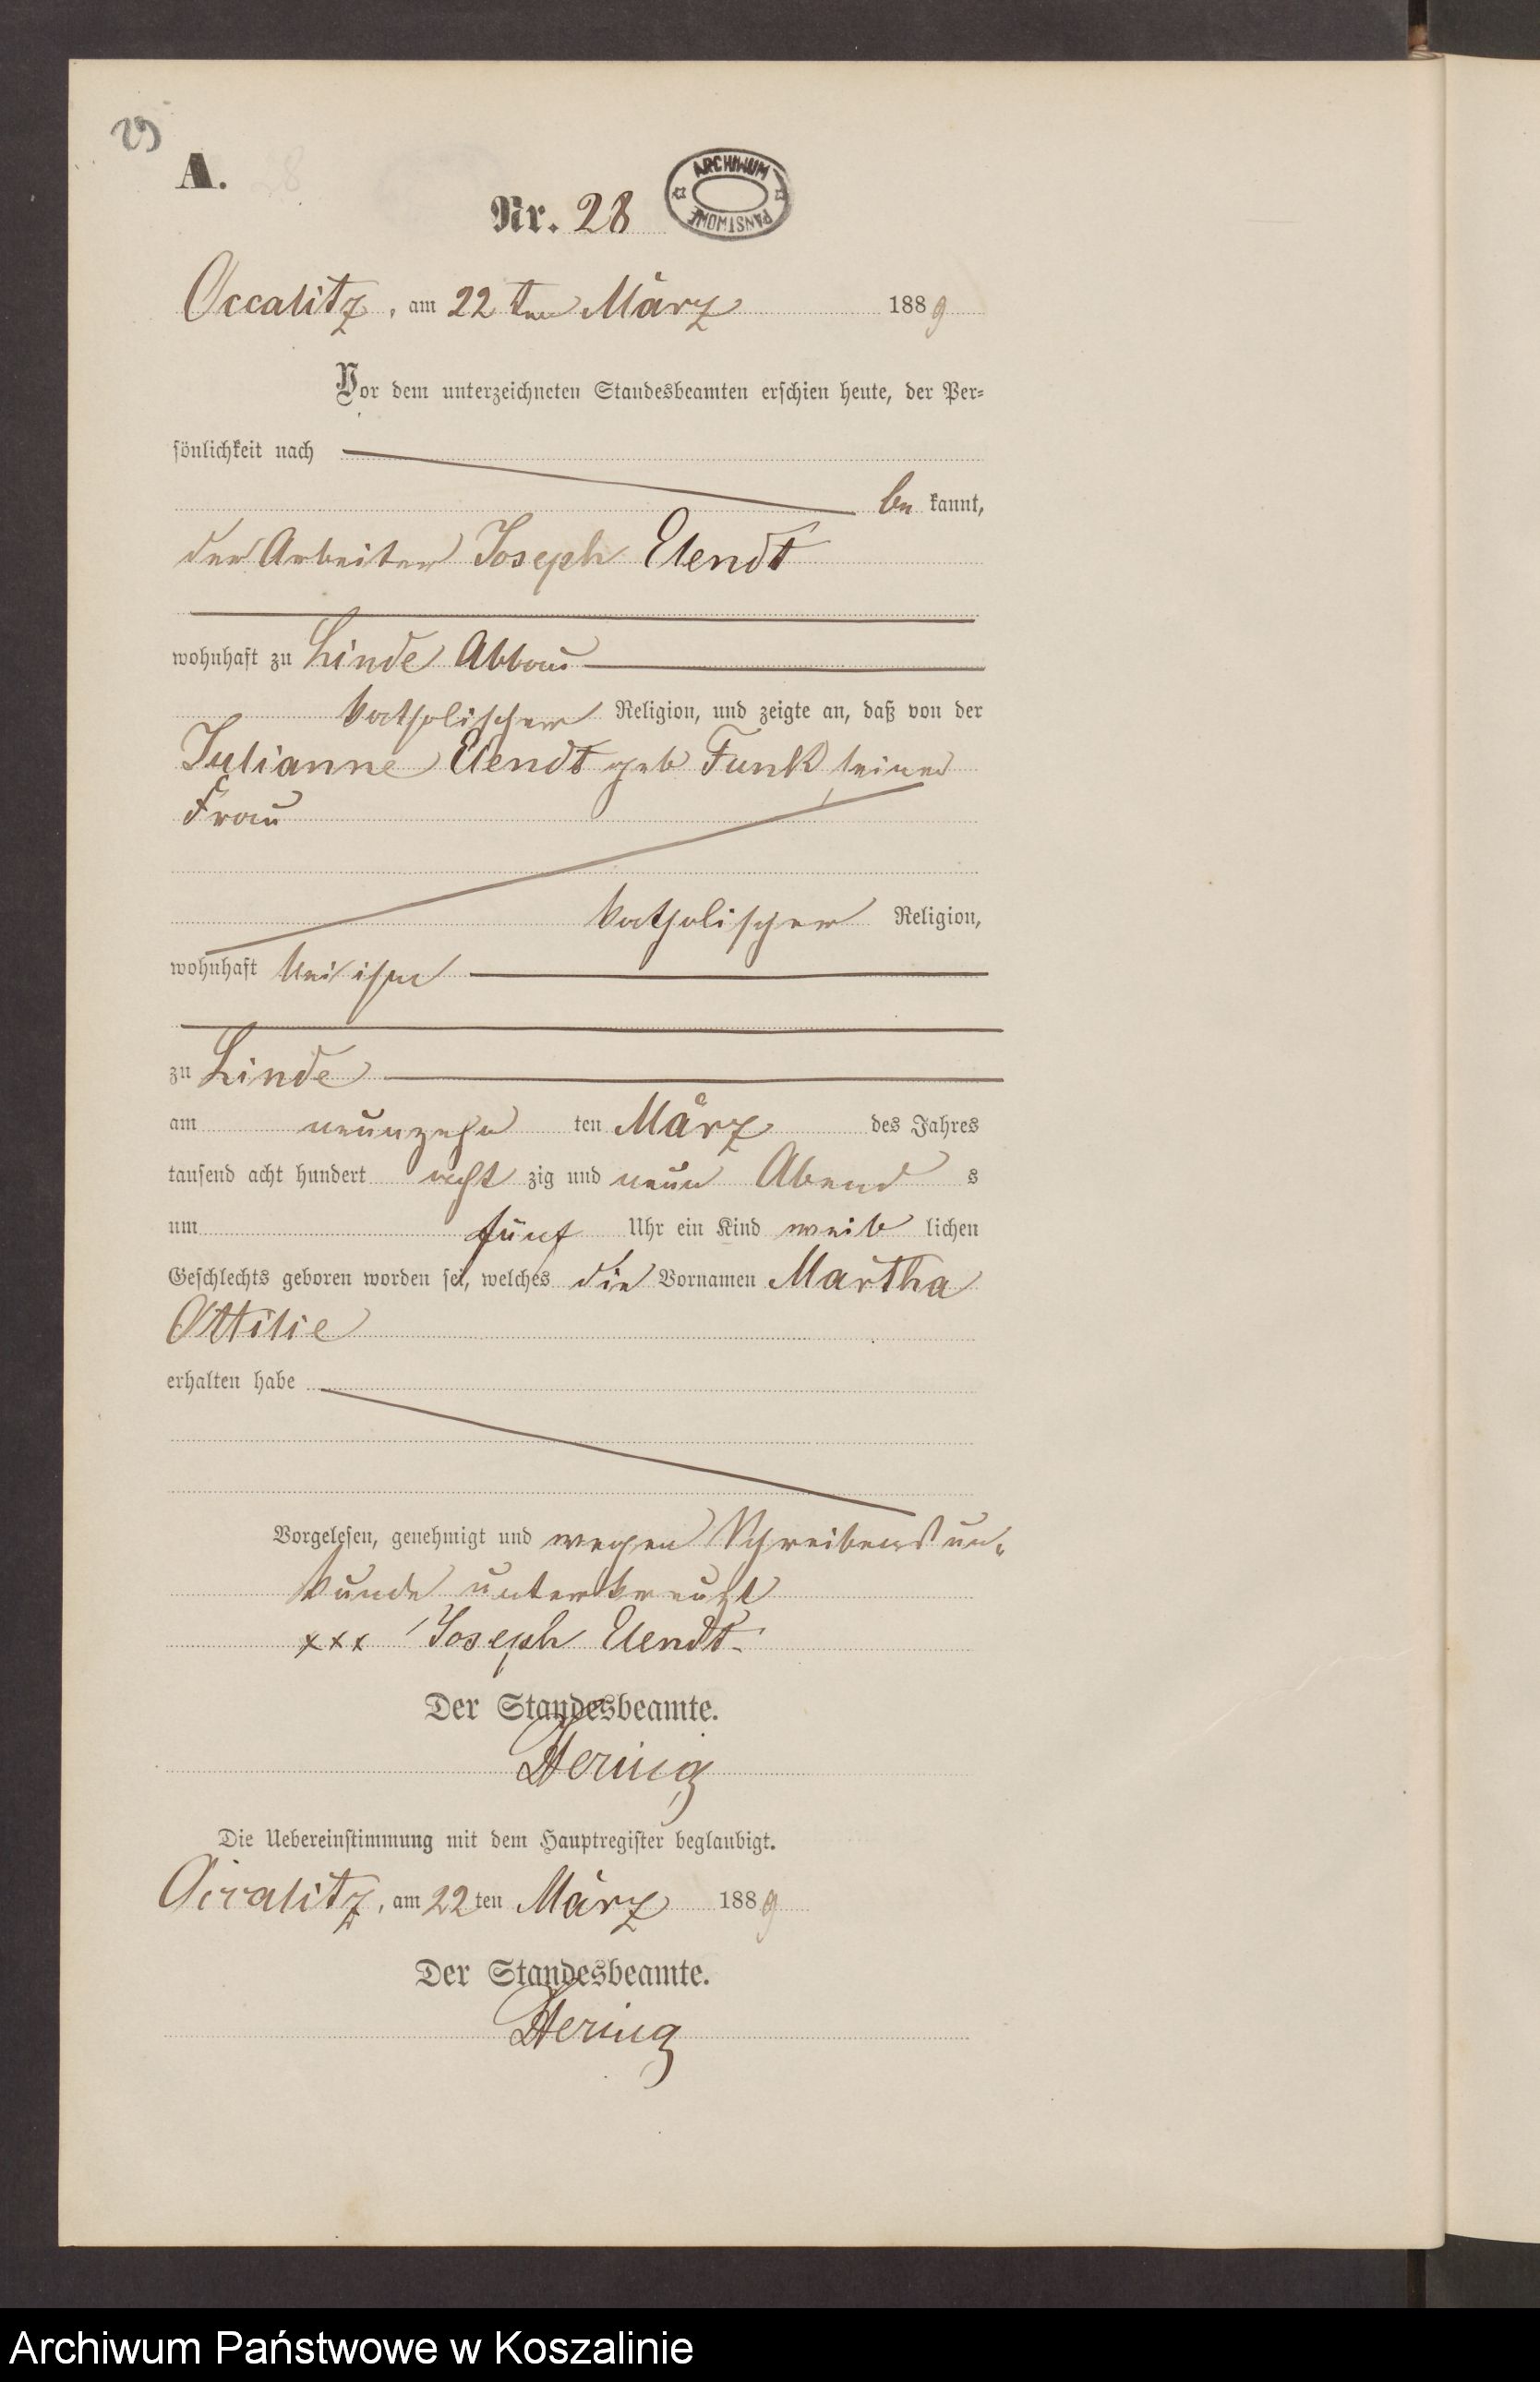 29
A.
Nr. 28
ARCHIWUM PAŃSTWOWE
Occalitz, am 22 ten März 1889
Vor dem unterzeichneten Standesbeamten erschien heute, der Per-
sönlichkeit nach
be kannt,
der Arbeiter Joseph Elendt
wohnhaft zu Linde Abbau
katholischer Religion, und zeigte an, daß von der
Julianne Elendt geb Funk, seiner
Frau
katholischer Religion,
wohnhaft bei ihm
zu Linde
am neunzehn ten März des Jahres
tausend acht hundert acht zig und neun Abend s
um fünf Uhr ein Kind weib lichen
Geschlechts geboren worden sei, welches die Vornamen Martha
Ottilie
erhalten habe
Vorgelesen, genehmigt und wegen Schreibens un-
kunde unterkreuzt
xxx Joseph Elendt.
Der Standesbeamte.
Hering
Die Uebereinstimmung mit dem Hauptregister beglaubigt.
Occalitz, am 22 ten März 1889
Der Standesbeamte.
Hering
Archiwum Państwowe w Koszalinie